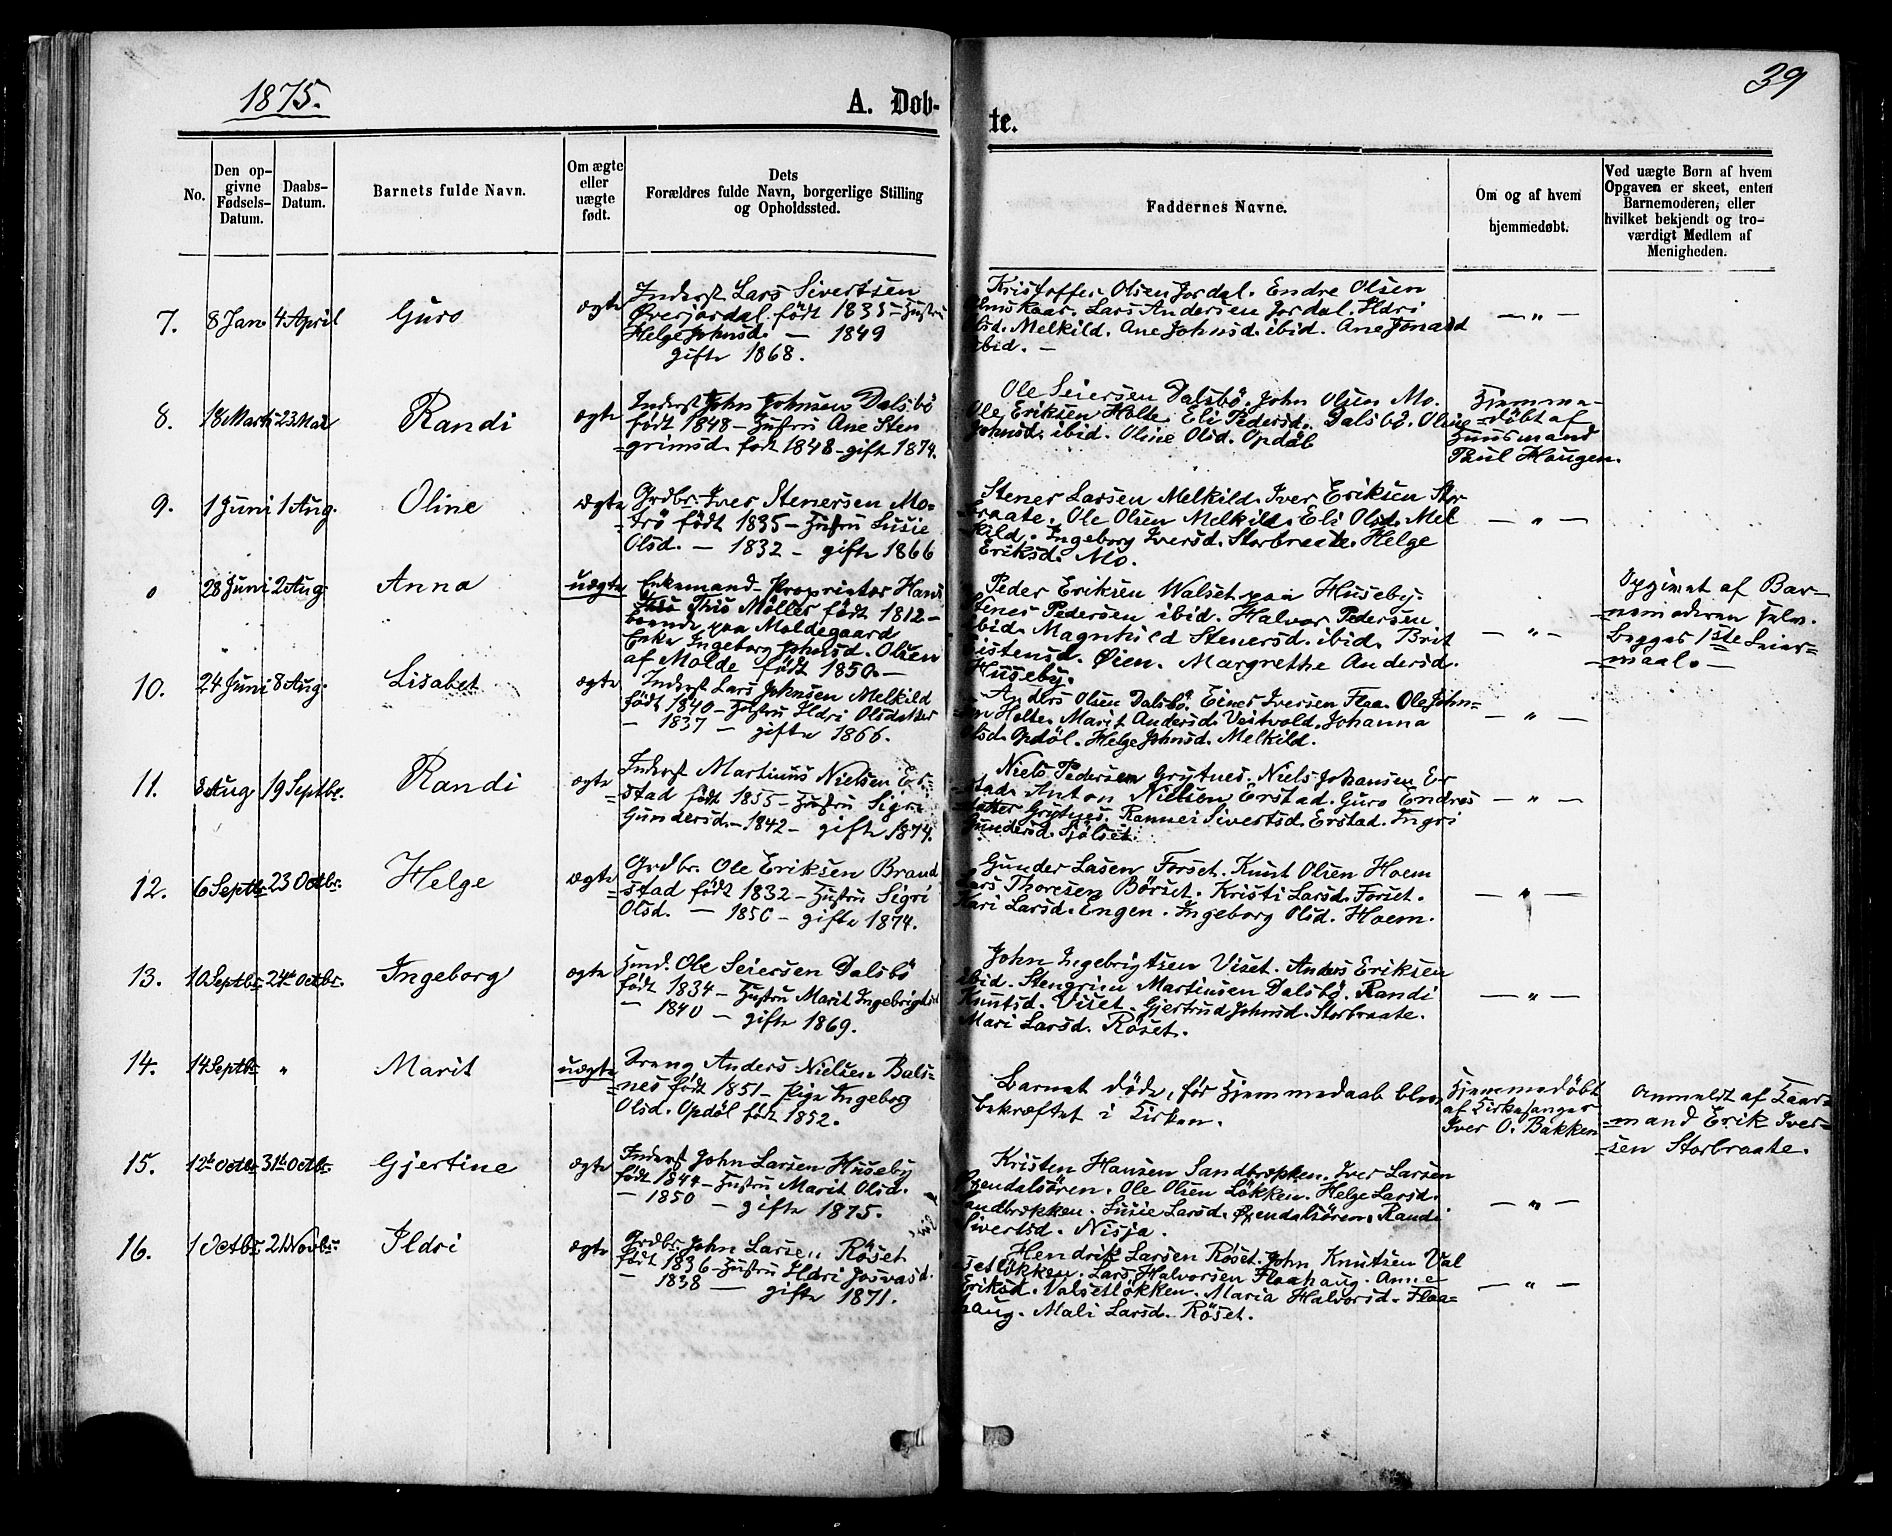 1875.
A. Døb-
te.
39
No.
Den op-
givne
Fødsels-
Datum.
Daabs-
Datum.
Barnets fulde Navn.
Om ægte
eller
uægte
født.
Dets
Forældres fulde Navn, borgerlige Stilling
og Opholdssted.
Faddernes Navne.
Om og af hvem
hjemmedøbt.
Ved uægte Børn af hvem
Opgaven er skeet, enten
Barnemoderen, eller
hvilket bekjendt og tro-
værdigt Medlem af
Menigheden.
7.
8 Jan
4 April
Guro
ægte
Inderst Lars Sivertsen
Øverjordal født 1835 - Hustru
Helge Johnsd. — 1849
gifte 1868.
Kristoffer Olsen Jordal. Endre Olsen
Lars Andersen Jordal. Ildri
Olsd. Melkild. Ane Johnsd. ibid. Ane Jonasd
ibid. —
— " —
8.
18 Marts
23 Mai
Randi
ægte
Inderst John Johnsen Dalsbø
født 1848 - Hustru Ane Sten
=grimsd. født 1848 - gifte 1874.
Ole Seiersen Dalsbø. John Olsen Mo.
Ole Eriksen Holte. Eli Pedersd. Dalsbø. Oline
Johnsd. ibid. Oline Olsd. Opdøl
Hjemme-
=døbt af
Huusmand
Poul Haugen.
9.
1 Juni
1 Aug.
Oline
ægte
Grdbr. Iver Stenersen Mo-
=trø født 1835 - Hustru Lisie
Olsd. — 1832 - gifte 1866
Stener Larsen Melkild. Iver Eriksen Stor
=braate. Ole Olsen Melkild. Eli Olsd. Mel
=kild. Ingeborg Iversd. Storbraate. Helge
Eriksd. Mo.
— " —
0
28 Juni
2 Aug.
Anna
uægte
Enkemand Proprietør Hans
Thiis Møller født 1812 -
boende paa Moldegaard
Enke Ingeborg Johnsd. Olsen
af Molde født 1850. —
Peder Eriksen Walset paa Huseby.
Stener Pedersen ibid. Halvor Pedersen
ibid. Magnhild Stenersd. ibid. Brit
Kristensd. Øien. Margrethe Andersd.
Huseby.
— " —
Opgivet af Bar-
nemoderen selv.
Begges 1ste Leier-
=maal. —
10.
24 Juni
8 Aug.
Lisabet
ægte
Inderst Lars Johnsen Melkild
født 1840 - Hustru Ildri Olsdatter
— 1837 — gifte 1866.
Anders Olsen Dalsbø. Einer Iversen Flaa. Ole John=
=sen Holte. Marit Andersd. Veitvold. Johanna
Olsd. Opdøl. Helge Johnsd. Melkild.
— " —
11.
8 Aug
19 Septbr.
Randi
ægte
Inderst Martinus Nielsen Er=
=stad født 1855 - Hustru Sigri
Gundersd. - 1842 - gifte 1874.
Niels Pedersen Grytnes. Niels Johansen Er
=stad. Anton Nielsen Erstad. Guro Endres
=datter Grytnes. Rannei Sivertsd. Erstad. Ingri
Gundersd. Tjølset.
— " —
12.
6 Septbr.
23 Octbr.
Helge
ægte
Grdbr. Ole Eriksen Brand
=stad født 1832 - Hustru Sigri
Olsd. — 1850 - gifte 1874.
Gunder Lasen Forset. Knut Olsen Hoem
Lars Thoresen Børset. Kristi Larsd. Forset.
Kari Larsd. Engen. Ingeborg Olsd. Hoem.
— " —
13.
10 Septbr.
24de Octbr.
Ingeborg
ægte
Hmd. Ole Seiersen Dalsbø
født 1834 - Hustru Marit Ingebrigtsd
— 1840 — gifte 1869.
John Ingebrigtsen Viset. Anders Eriksen
ibid. Stengrim Martinsen Dalsbø. Randi
Knutsd. Viset. Gjertrud Johnsd. Storbraate.
Mari Larsd. Røset.
— " —
14.
14 Septbr
"
Marit
uægte
Dreng Anders Nielsen Bals=
=nes født 1851 - Pige Ingeborg
Olsd. Opdøl født 1852.
Barnet døde, før Hjemmedaab blev
bekræftet i Kirken.
Hjemmedøbt
af Kirkesanger
Iver O. Bakken
Anmeldt af Kaar-
=mand Erik Iver-
=sen Storbraate.
15.
12te Octbr.
31te Octbr.
Gjertine
ægte
Inderst John Larsen Huseby
født 1844 - Hustru Marit Olsd.
— 1850 — gifte 1875.
Kristen Hansen Sandbrekken. Iver Larsen
Ørendalsøren. Ole Olsen Løkken. Helge Larsd.
Sandbrekken. Lisie Larsd. Ørendalsøren. Randi
Sivertsd. Nisja.
— " —
16.
1 Octbr
21 Novbr.
Ildri
ægte
Grdbr. John Larsen Røset
født 1836 - Hustru Ildri Josvasd.
— 1838 — gifte 1871.
Hendrik Larsen Røset. John Knutsen Val
=setløkken. Lars Halvorsen Flaahaug. Anne
Eriksd. Valsetløkken. Maria Halvorsd. Flaa=
=haug. Mali Larsd. Røset.
— " —